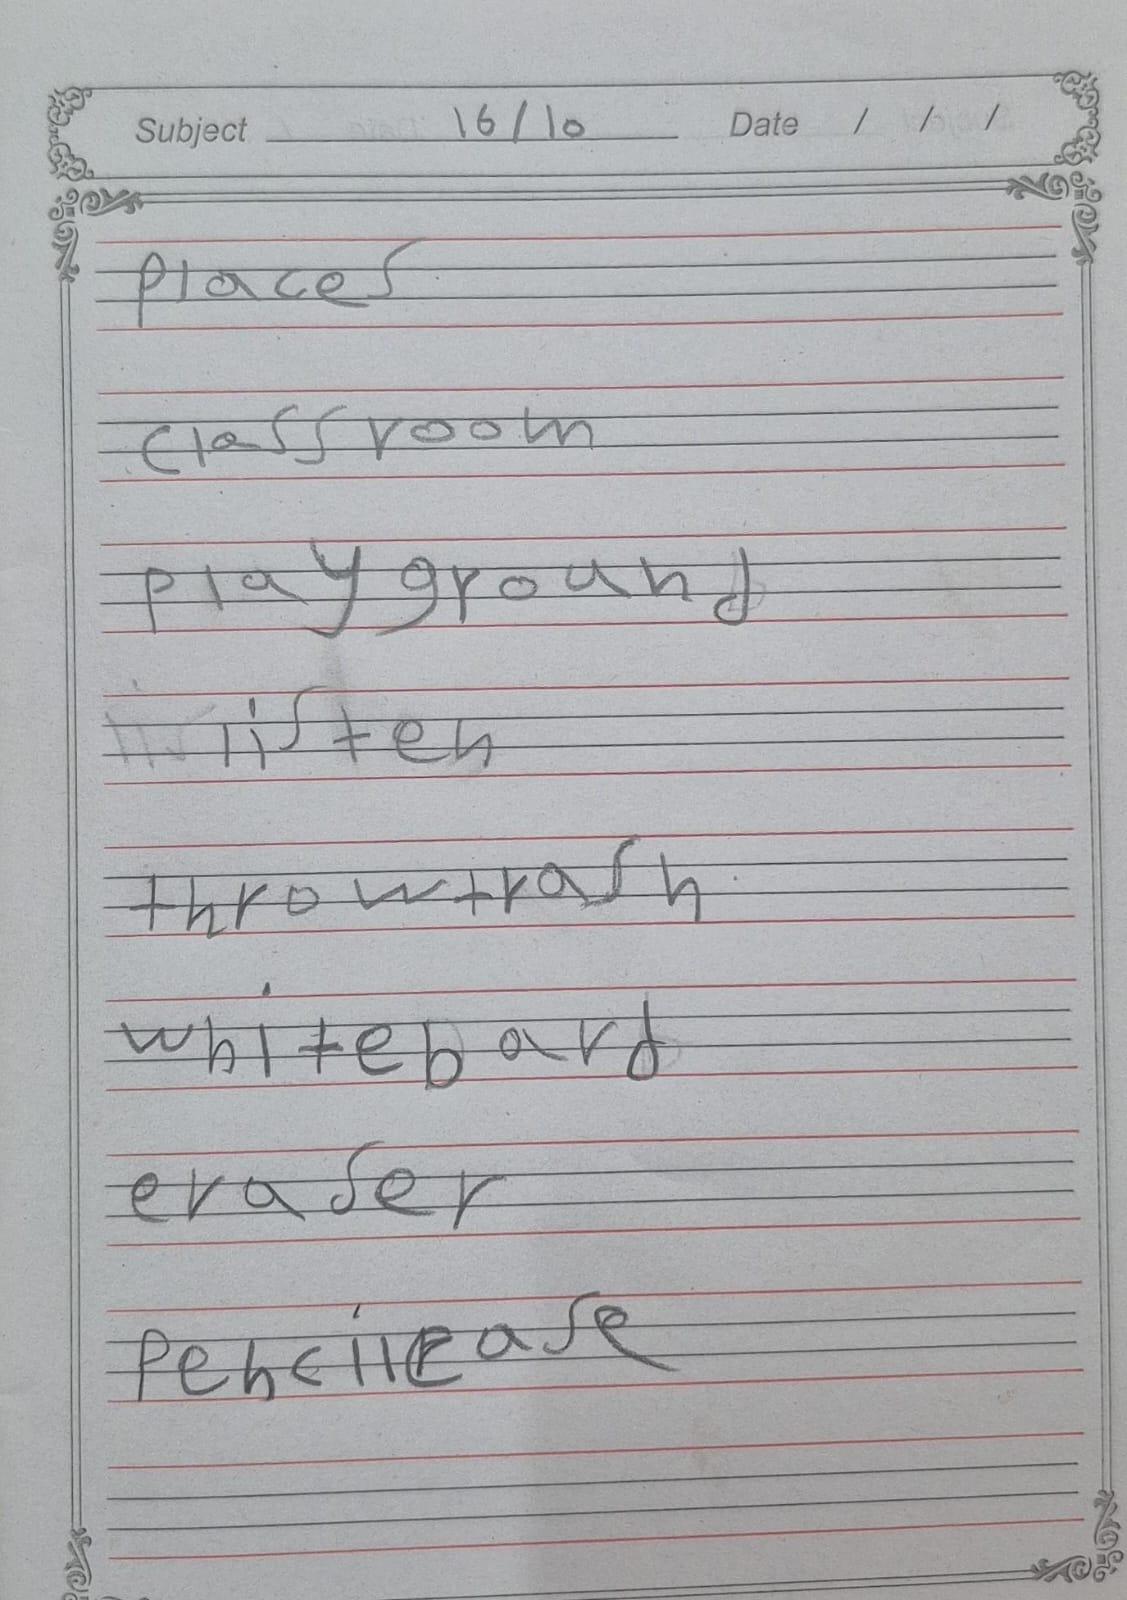 Subject 16/10 Date / / /
places
classroom
playground
listen
throwtrash
whitebard
eraser
pencilcase